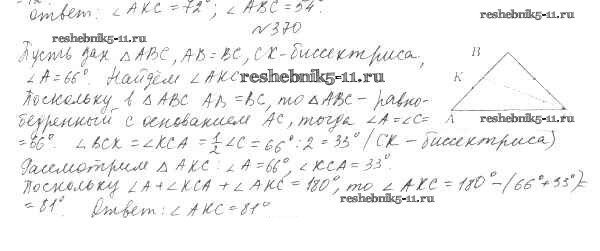 Ответ: ∠AKC = 72°; ∠ABC = 54°
reshebnik5-11.ru
№370
Пусть дан △ABC, AB = BC, CK - биссектриса,
∠A = 66°. Найдём ∠AKC
reshebnik5-11.ru
Поскольку в △ABC AB = BC, то △ABC - равно-
бедренный с основанием AC, тогда ∠A = ∠C =
= 66°. ∠BCK = ∠KCA = 1/2 ∠C = 66° : 2 = 33° (CK - биссектриса)
Рассмотрим △AKC: ∠A = 66°, ∠KCA = 33°.
reshebnik5-11.ru
Поскольку ∠A + ∠KCA + ∠AKC = 180°, то ∠AKC = 180° - (66° + 33°) =
= 81°. Ответ: ∠AKC = 81°
reshebnik5-11.ru
B
K
A